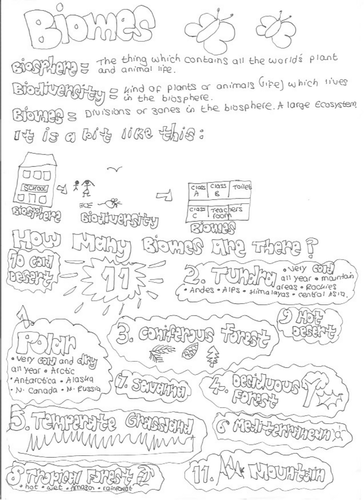 Biomes
Biosphere = The thing which contains all the world's plant
and animal life.
Biodiversity = kind of plants or animals (life) which lives
in the biosphere.
Biomes = Divisions or zones in the biosphere. A large Ecosystem
It is a bit like this:
SCHOOL
Class A Class B Toilet
Class C Teachers room
Biosphere Biodiversity Biomes
How Many Biomes Are There?
11
10 Cold Desert
2. Tundra • Very cold
all year • mountain
areas • Rockies
• Andes • Alps • Himalayas • central Asia.
9 Hot Desert
1.
Polar
• Very cold and dry
all year • Arctic
Antarctica • Alaska
• N. Canada • N. Russia
3. Coniferous Forest
7. Savanna
4. Deciduous
Forest
5. Temperate Grassland
6 Mediterranean
8 Tropical Forest
• hot • wet • Amazon • rainforest
11. Mountain